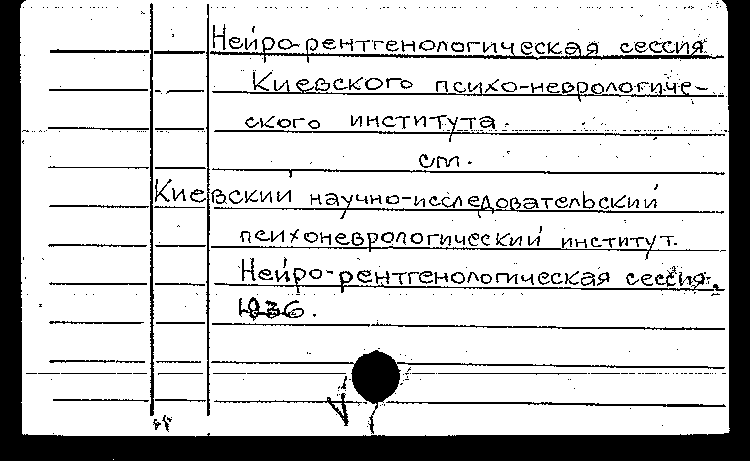 Нейро-рентгенологическая сессия
Киевского психо-неврологиче-
ского института.
см.
Киевский научно-исследовательский
психоневрологический институт.
Нейро-рентгенологическая сессия.
1936.